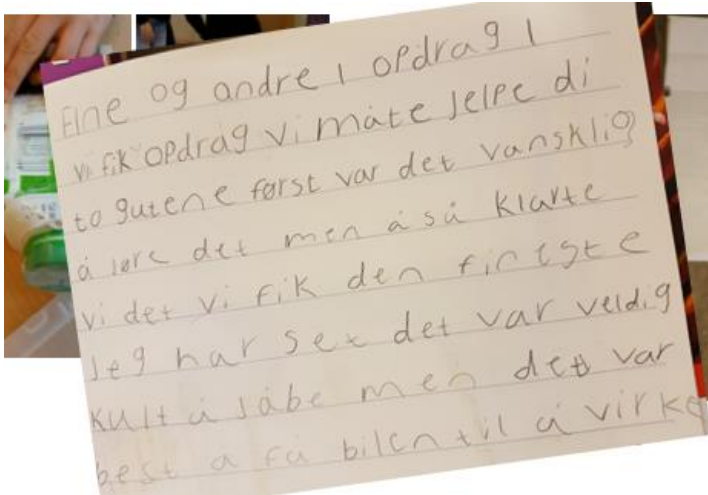 Eine og andre i opdrag 1
vi fik opdrag vi måte jelpe di
to gutene først var det vansklig
å jøre det men å så klarte
vi det vi fik den fineste
jeg har set det var veldig
kult å jåbe men det var
best a få bilen til å virke